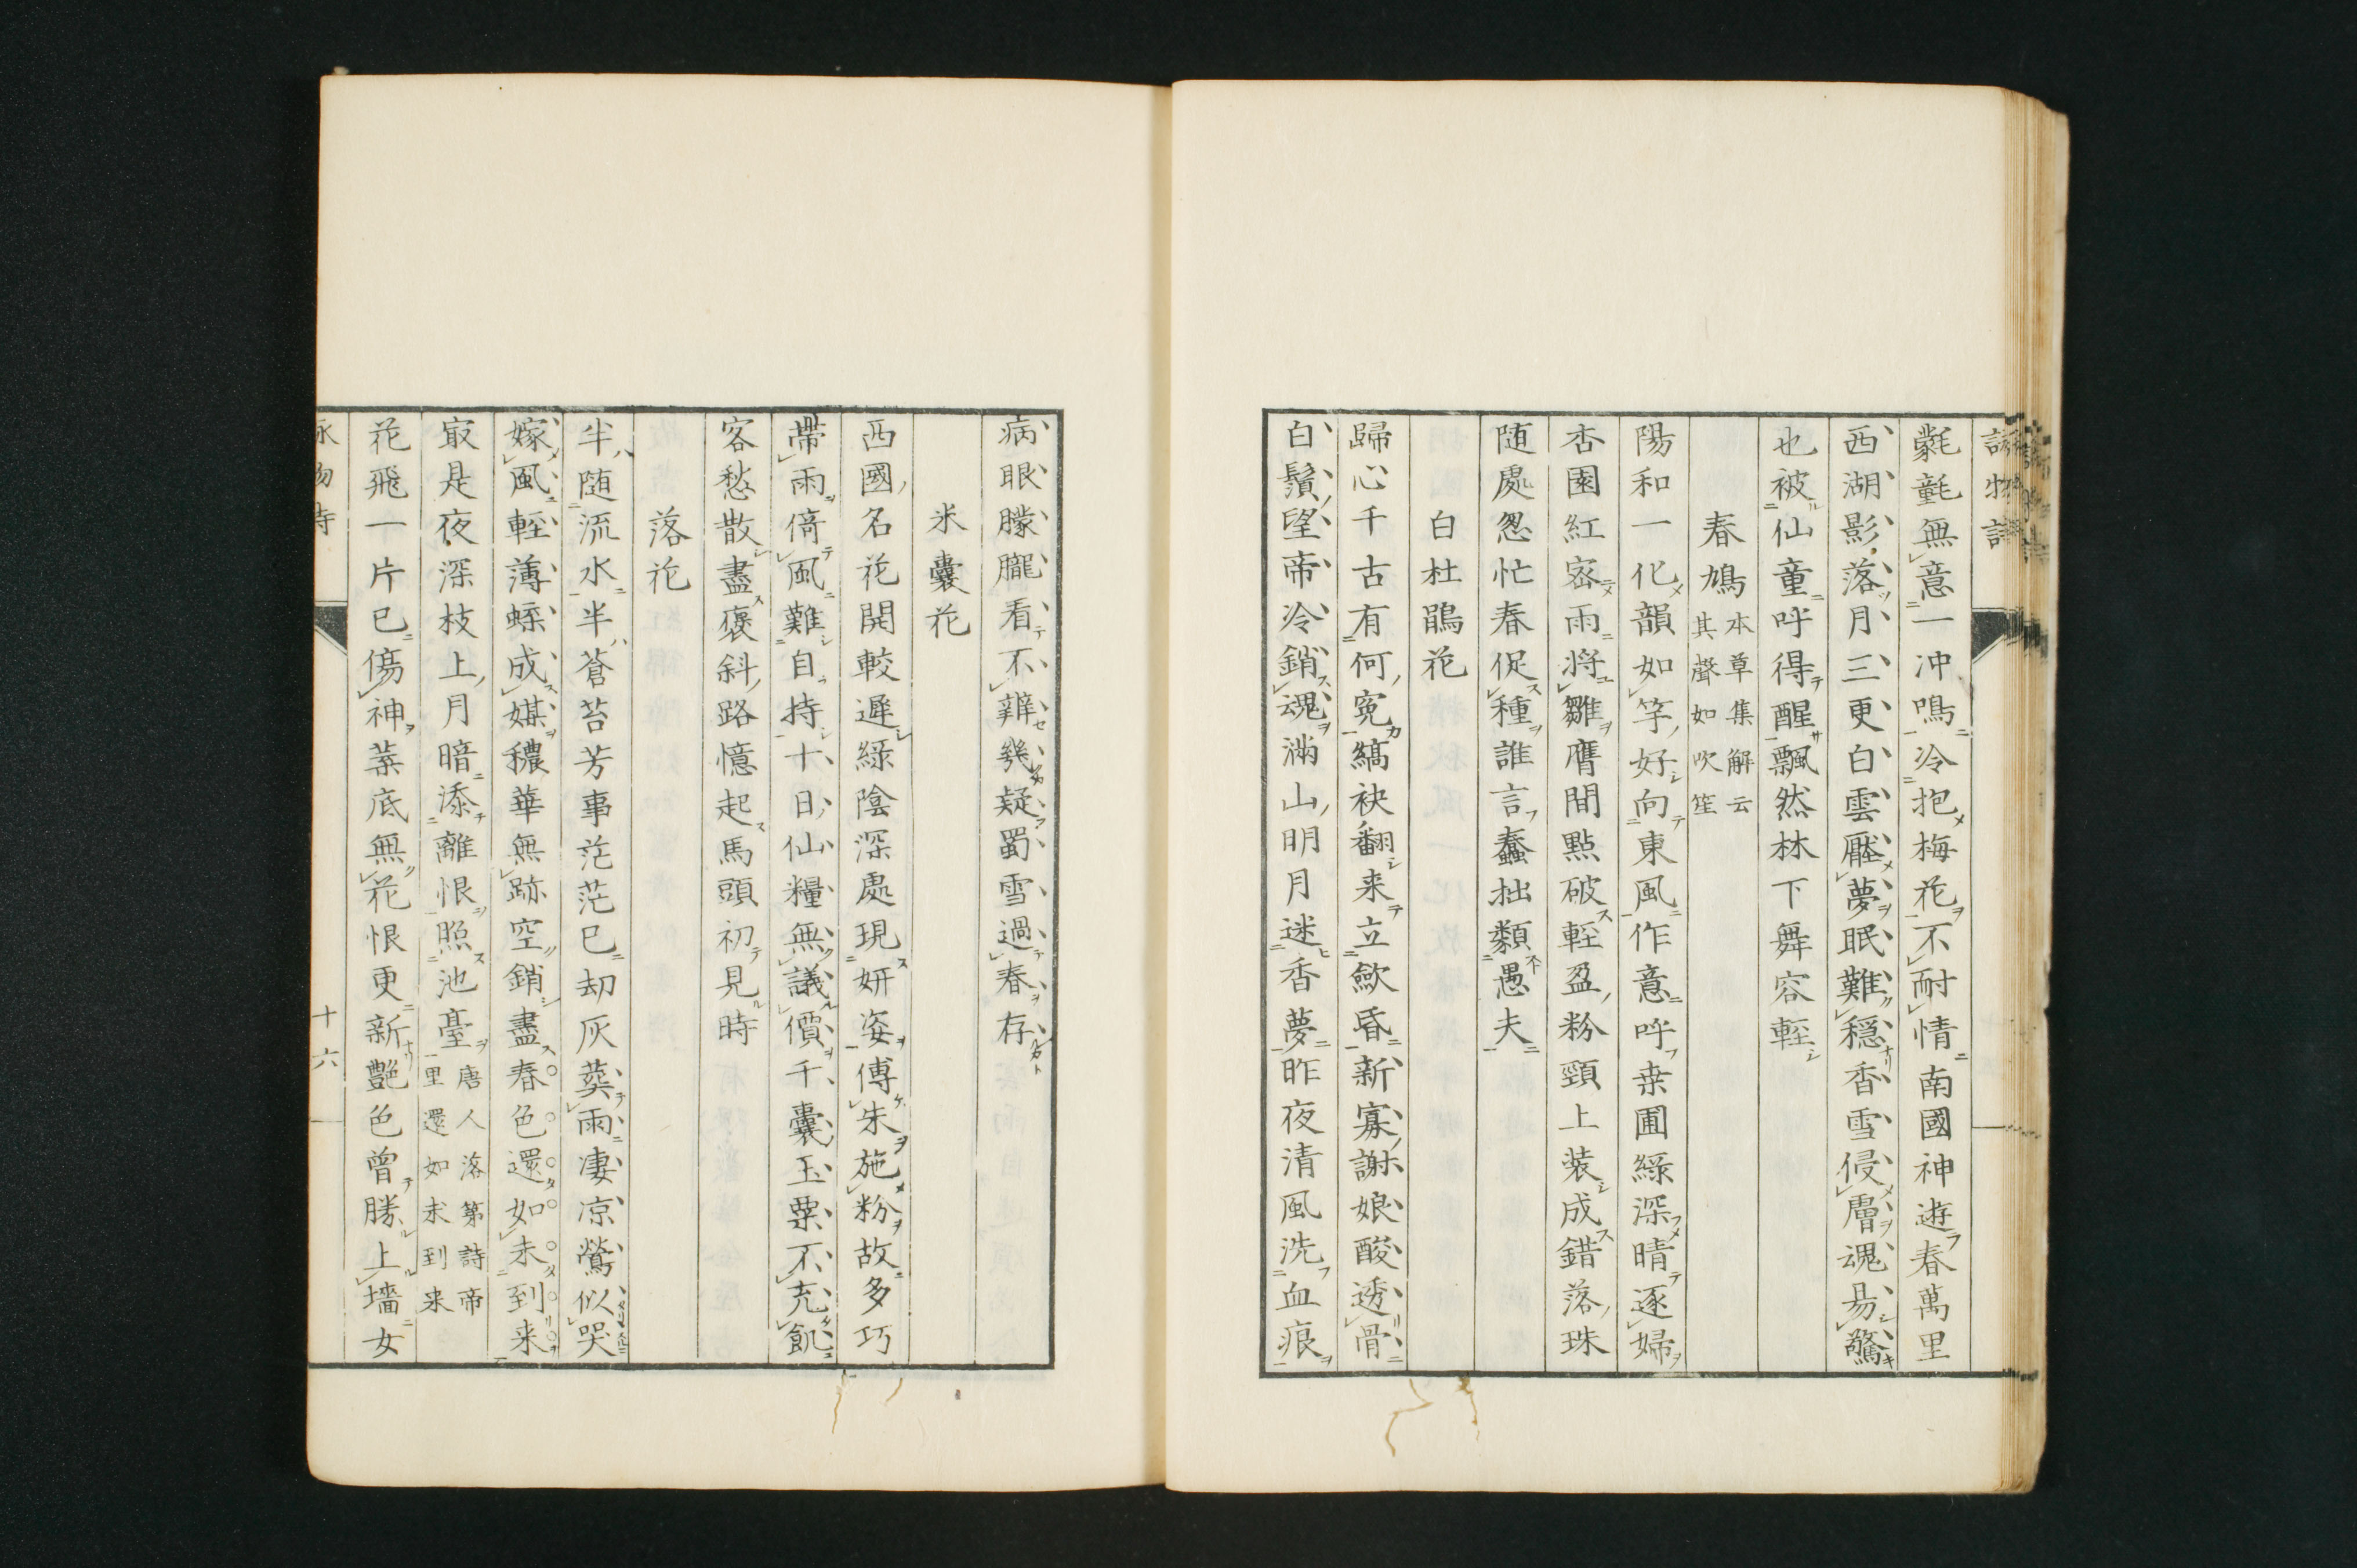 詠物詩
氋氃無意一冲鳴冷抱梅花不耐情南國神遊春萬里
西湖影落月三更白雲壓夢眠難穩香雪侵膚魂易驚
也被仙童呼得醒飄然林下舞容輕
春鳩本草集解云
其聲如吹笙
陽和一化韻如竽好向東風作意呼桒圃綠深晴逐婦
杏園紅密雨將雛膺間點破輕盈粉頸上装成錯落珠
随處怱忙春促種誰言蠢拙類愚夫
白杜鵑花
歸心千古有何冤縞袂翻来立歛昏新寡謝娘酸透骨
白鬚望帝冷銷魂滿山明月迷香夢昨夜清風洗血痕
病眼朦朧看不辨幾疑蜀雪過春存
米囊花
西國名花開較遲綠陰深處現妍姿傅朱施粉故多巧
帶雨倚風難自持十日仙糧無議價千囊玉粟不充飢
客愁散盡褒斜路憶起馬頭初見時
落花
半随流水半蒼苔芳事茫茫已刧灰葬雨凄凉鶯似哭
嫁風輕薄蝶成媒穠華無跡空銷盡春色還如未到来
㝡是夜深枝上月暗添離恨照池臺唐人落第詩帝
里還如未到来
花飛一片已傷神葉底無花恨更新艶色曾勝上墻女
十六